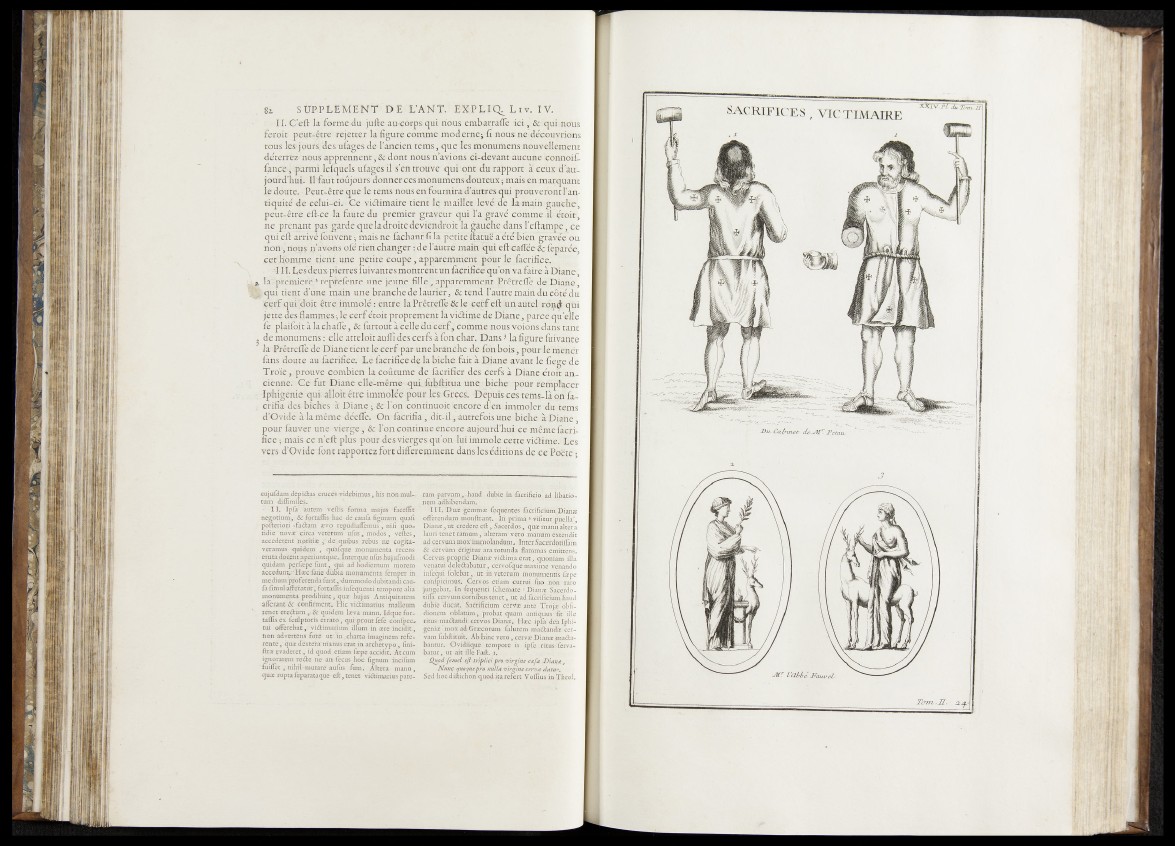 82 SUPPLEMENT DE L'ANT. EXPLIQ. LIV. IV.
II. C'est la forme du juste au-corps qui nous embarrasse ici, & qui nous
feroit peut-être rejetter la figure comme moderne; si nous ne découvrions
tous les jours des usages de l'ancien tems, que les monumens nouvellement
déterrez nous apprennent, & dont nous n'avions ci-devant aucune connois-
sance, parmi lesquels usages il s'en trouve qui ont du rapport à ceux d'au-
jourd'hui. Il faut toûjours donner ces monumens douteux; mais en marquant
le doute. Peut-être que le tems nous en fournira d'autres qui prouveront l'an-
tiquité de celui-ci. Ce victimaire tient le maillet levé de la main gauche,
peut-être est-ce la faute du premier graveur qui l'a gravé comme il étoit,
ne prenant pas garde que la droite deviendroit la gauche dans l'estampe, ce
qui est arrivé souvent; mais ne sachant si la petite statuë a été bien gravée ou
non, nous n'avons osé rien changer: de l'autre main qui est cassée & separée,
cet homme tient une petite coupe, apparemment pour le sacrifice.
III. Les deux pierres suivantes montrent un sacrifice qu'on va faire à Diane,
2 la premiere ² represente une jeune fille, apparemment Prêtresse de Diane,
qui tient d'une main une branche de laurier, & tend l'autre main du côté du
cerf qui doit être immolé: entre la Prêtresse & le cerf est un autel rond qui
jette des flammes; le cerf étoit proprement la victime de Diane, parce qu'elle
se plaisoit à la chasse, & surtout à celle du cerf, comme nous voions dans tant
de monumens: elle atteloit aussi des cerfs à son char. Dans ³ la figure suivante
3 la Prêtresse de Diane tient le cerf par une branche de son bois, pour le mener
sans doute au sacrifice. Le sacrifice de la biche fait à Diane avant le siege de
Troie, prouve combien la coûtume de sacrifier des cerfs à Diane étoit an-
cienne. Ce fut Diane elle-même qui substitua une biche pour remplacer
Iphigenie qui alloit être immolée pour les Grecs. Depuis ces tems-là on sa-
crifia des biches à Diane; & l'on continuoit encore d'en immoler du tems
d'Ovide à la même déesse. On sacrifia, dit-il, autrefois une biche à Diane,
pour sauver une vierge, & l'on continue encore aujourd'hui ce même sacri-
fice; mais ce n'est plus pour des vierges qu'on lui immole cette victime. Les
vers d'Ovide sont rapportez fort differemment dans les éditions de ce Poëte;
cujusdam depictas cruces videbimus, his non mul-
tum dissimiles.
II. Ipsa autem vestis forma majus facessit
negotium, & fortassis hac de causa figuram quasi
posteriori factam ævo repudiassemus, nisi quo-
tidie novæ circa veterum usus, modos, vestes,
accederent notitiæ, de quibus rebus ne cogita-
veramus quidem, quosque monumenta recens
eruta docent aperiuntque. Interque usus hujusmodi
quidam persæpe sunt, qui ad hodiernum morem
accedunt. Hæc sane dubia monumenta semper in
medium proferenda sunt, dummodo dubitandi cau-
sa simul afferatur, fortassis insequenti tempore alia
monumenta prodibunt, quæ hujus Antiquitatem
asserant & confirment. Hic victimarius malleum
tenet erectum, & quidem læva manu. Idque for-
tassis ex sculptoris errato, qui prout sese conspec-
tui offerebat, victimarium illum in ære incidit,
non advertens fore ut in charta imaginem refe-
rente, quæ dextera manus erat in archetypo, sini-
stra evaderet, id quod etiam sæpe accidit. At cum
ignoremus recte ne an secus hoc signum incisum
fuisset, nihil mutare ausus sum. Altera manu,
quæ rupta separataque est, tenet victimarius pate-
ram parvam, haud dubie in sacrificio ad libatio-
nem adhibendam.
III. Duæ gemmæ sequentes sacrificium Dianæ
offerendum monstrant. In prima ² visitur puella,
Dianæ, ut credere est, Sacerdos, quæ manu altera
lauri tenet ramum, alteram vero manum extendit
ad cervum mox immolandum. Inter Sacerdotissam
& cervum erigitur ara rotunda flammas emittens.
Cervus proprie Dianæ victima erat, quoniam illa
venatu delectabatur, cervosque maxime venando
insequi solebat, ut in veterum monumentis sæpe
conspicimus. Cervos etiam currui suo non raro
jungebat. In sequenti schemate ³ Dianæ Sacerdo-
tissa cervum cornibus tenet, ut ad sacrificium haud
dubie ducat. Sacrificium cervæ ante Trojæ obsi-
dionem oblatum, probat quam antiquus sit ille
ritus mactandi cervos Dianæ. Hæc ipsa dea Iphi-
geniæ mox ad Græcorum salutem mactandæ cer-
vam substituit. Ab hinc vero, cervæ Dianæ macta-
bantur. Ovidiique tempore is ipse ritus serva-
batur, ut ait ille Fast. 1.
Quod semel est triplici pro virgine cæsa Dianæ,
Nunc quoque pro nulla virgine cerva datur.
Sed hoc distichon quod ita refert Vossius in Theol.
XXIV Pl. du Tom. II
SACRIFICES, VICTIMAIRE
1 1
Du Cabinet de Mr
2 3
Mr l'Abbé Fauvel
Tom. II 24